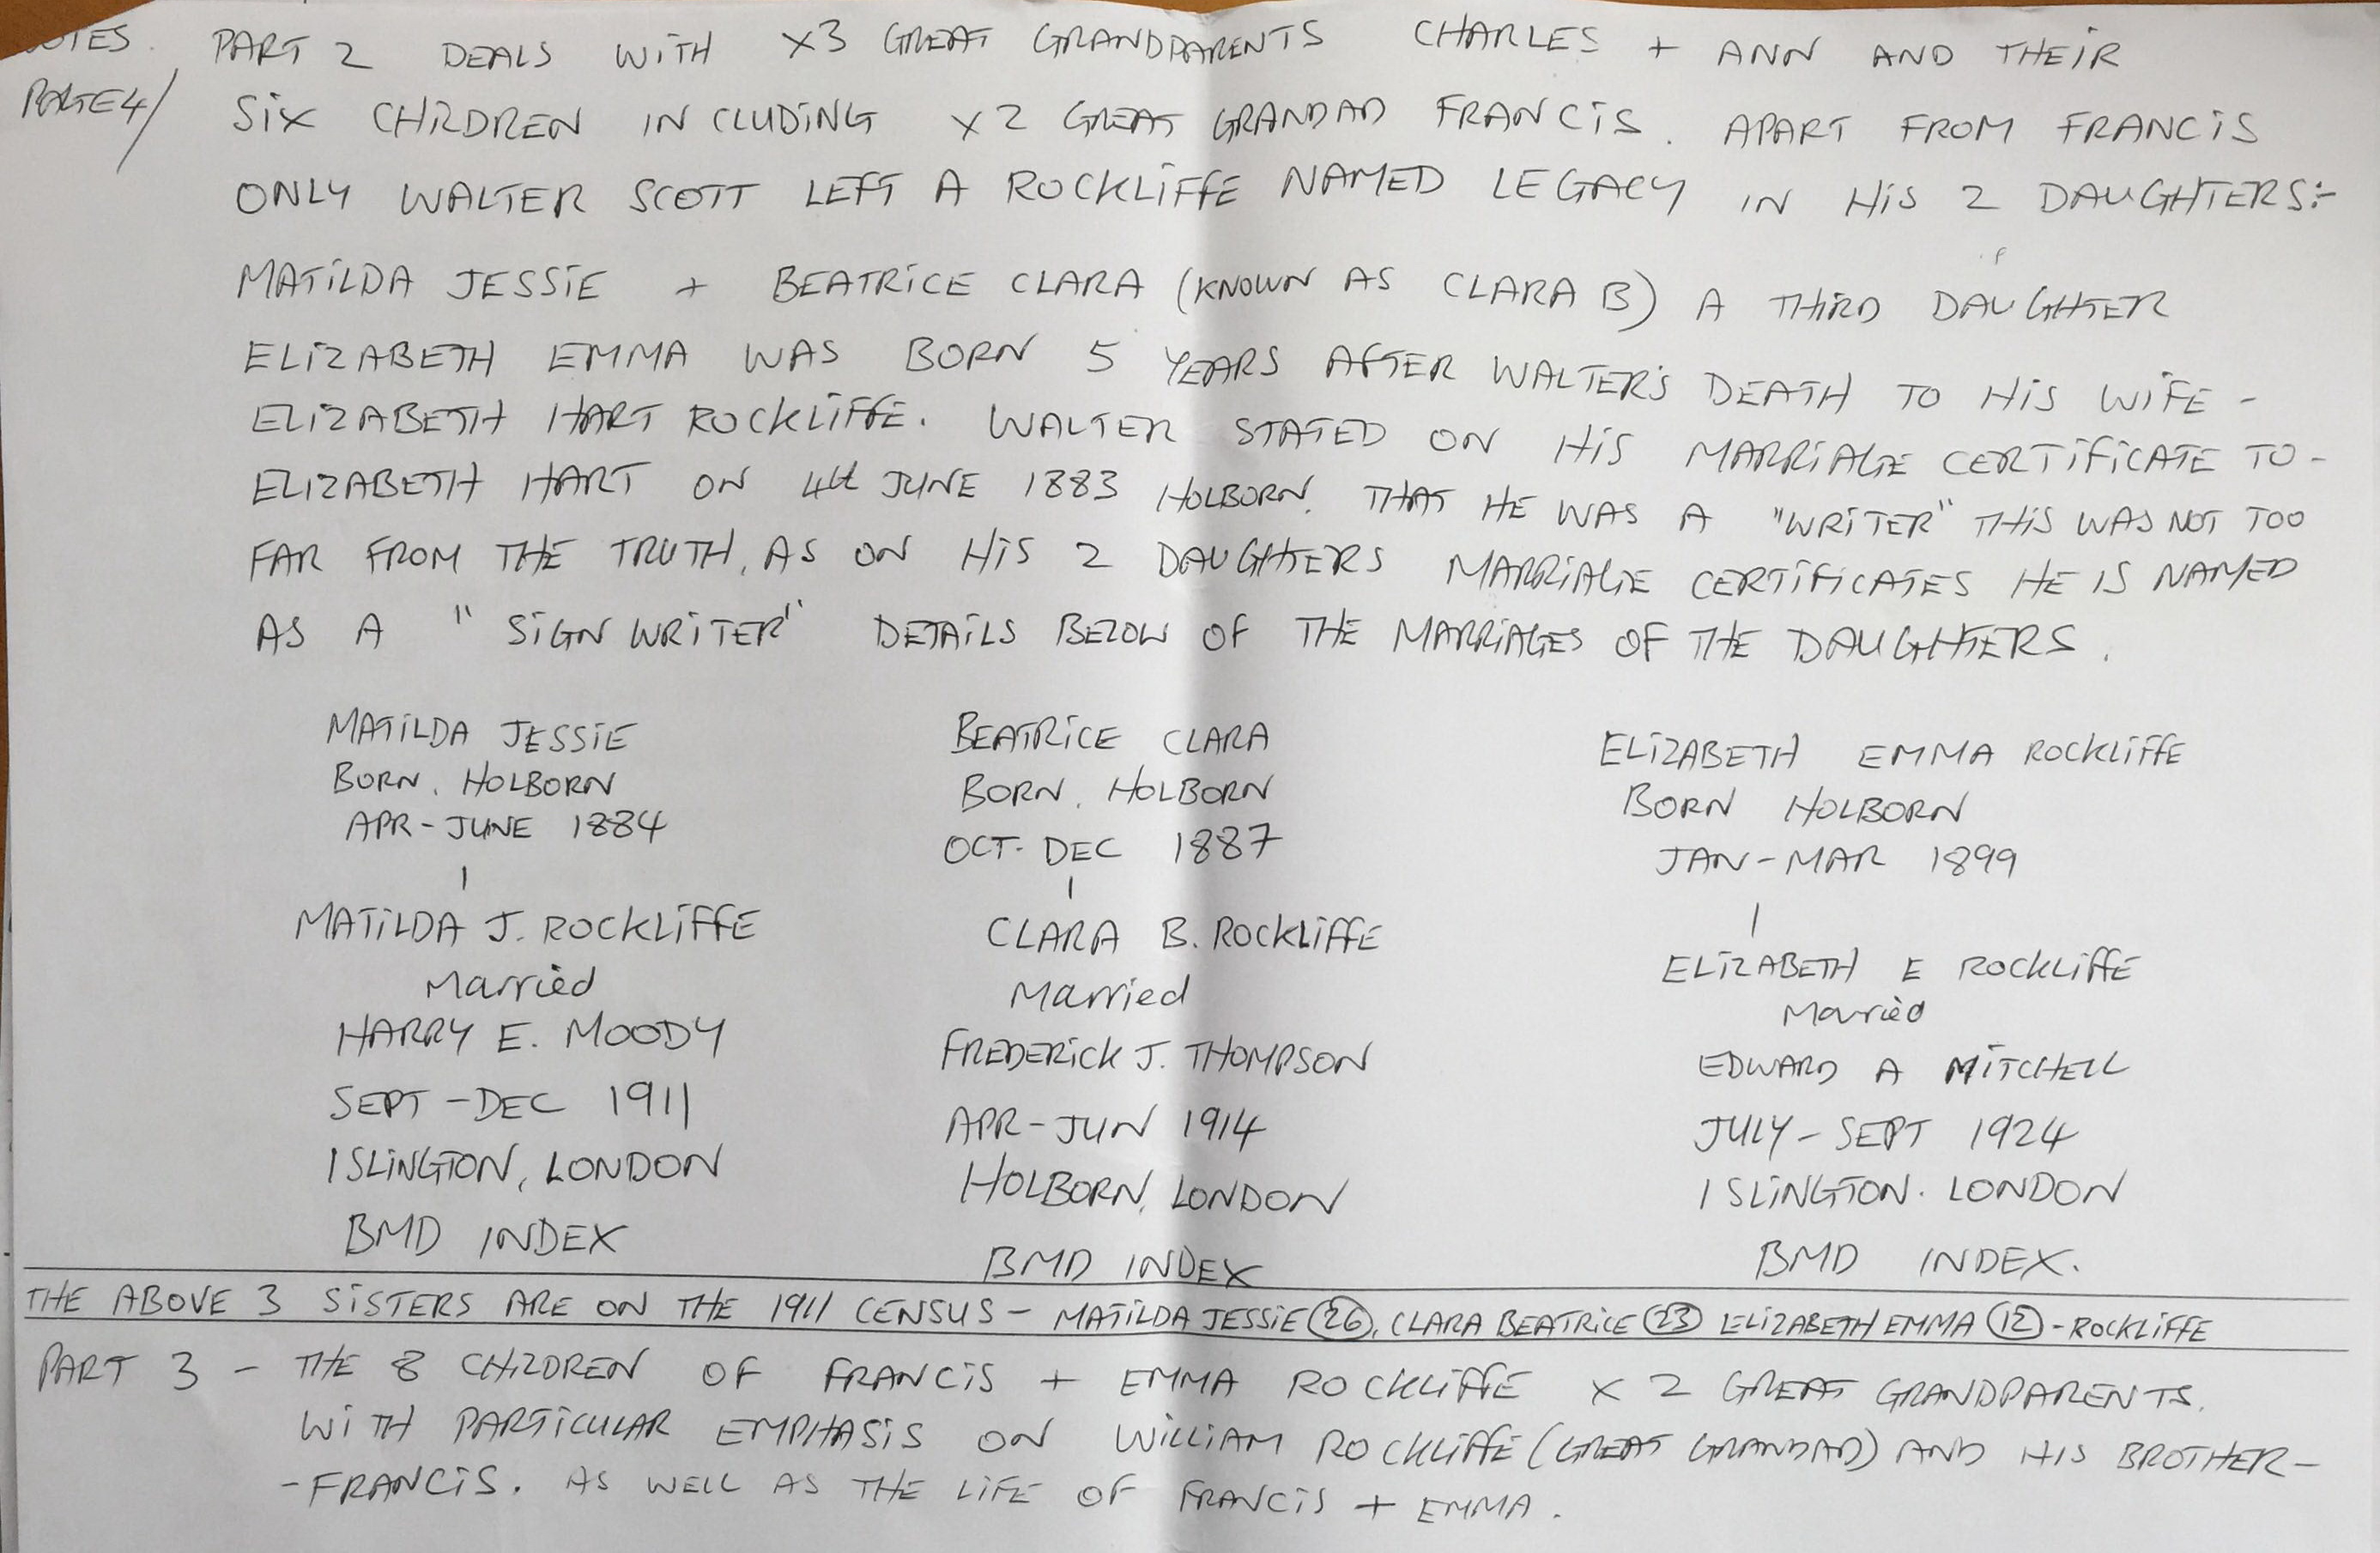 NOTES. PART 2 DEALS WITH x3 GREAT GRANDPARENTS CHARLES + ANN AND THEIR
PAGE 4/ SIX CHILDREN INCLUDING x2 GREAT GRANDAD FRANCIS. APART FROM FRANCIS
ONLY WALTER SCOTT LEFT A ROCKLIFFE NAMED LEGACY IN HIS 2 DAUGHTERS:-
MATILDA JESSIE + BEATRICE CLARA (KNOWN AS CLARA B) A THIRD DAUGHTER
ELIZABETH EMMA WAS BORN 5 YEARS AFTER WALTER'S DEATH TO HIS WIFE -
ELIZABETH HART ROCKLIFFE. WALTER STATED ON HIS MARRIAGE CERTIFICATE TO -
ELIZABETH HART ON 4th JUNE 1883 HOLBORN. THAT HE WAS A "WRITER" THIS WAS NOT TOO
FAR FROM THE TRUTH, AS ON HIS 2 DAUGHTERS MARRIAGE CERTIFICATES HE IS NAMED
AS A "SIGN WRITER" DETAILS BELOW OF THE MARRIAGES OF THE DAUGHTERS.
MATILDA JESSIE
BORN. HOLBORN
APR - JUNE 1884
MATILDA J. ROCKLIFFE
Married
HARRY E. MOODY
SEPT - DEC 1911
ISLINGTON, LONDON
BMD INDEX
BEATRICE CLARA
BORN. HOLBORN
OCT - DEC 1887
CLARA B. ROCKLIFFE
Married
FREDERICK J. THOMPSON
APR - JUN 1914
HOLBORN, LONDON
BMD INDEX
ELIZABETH EMMA ROCKLIFFE
BORN HOLBORN
JAN - MAR 1899
ELIZABETH E ROCKLIFFE
Married
EDWARD A MITCHELL
JULY - SEPT 1924
ISLINGTON. LONDON
BMD INDEX.
THE ABOVE 3 SISTERS ARE ON THE 1911 CENSUS - MATILDA JESSIE 26, CLARA BEATRICE 23 ELIZABETH EMMA 12 - ROCKLIFFE
PART 3 - THE 8 CHILDREN OF FRANCIS + EMMA ROCKLIFFE x 2 GREAT GRANDPARENTS.
WITH PARTICULAR EMPHASIS ON WILLIAM ROCKLIFFE (GREAT GRANDAD) AND HIS BROTHER -
- FRANCIS. AS WELL AS THE LIFE OF FRANCIS + EMMA.